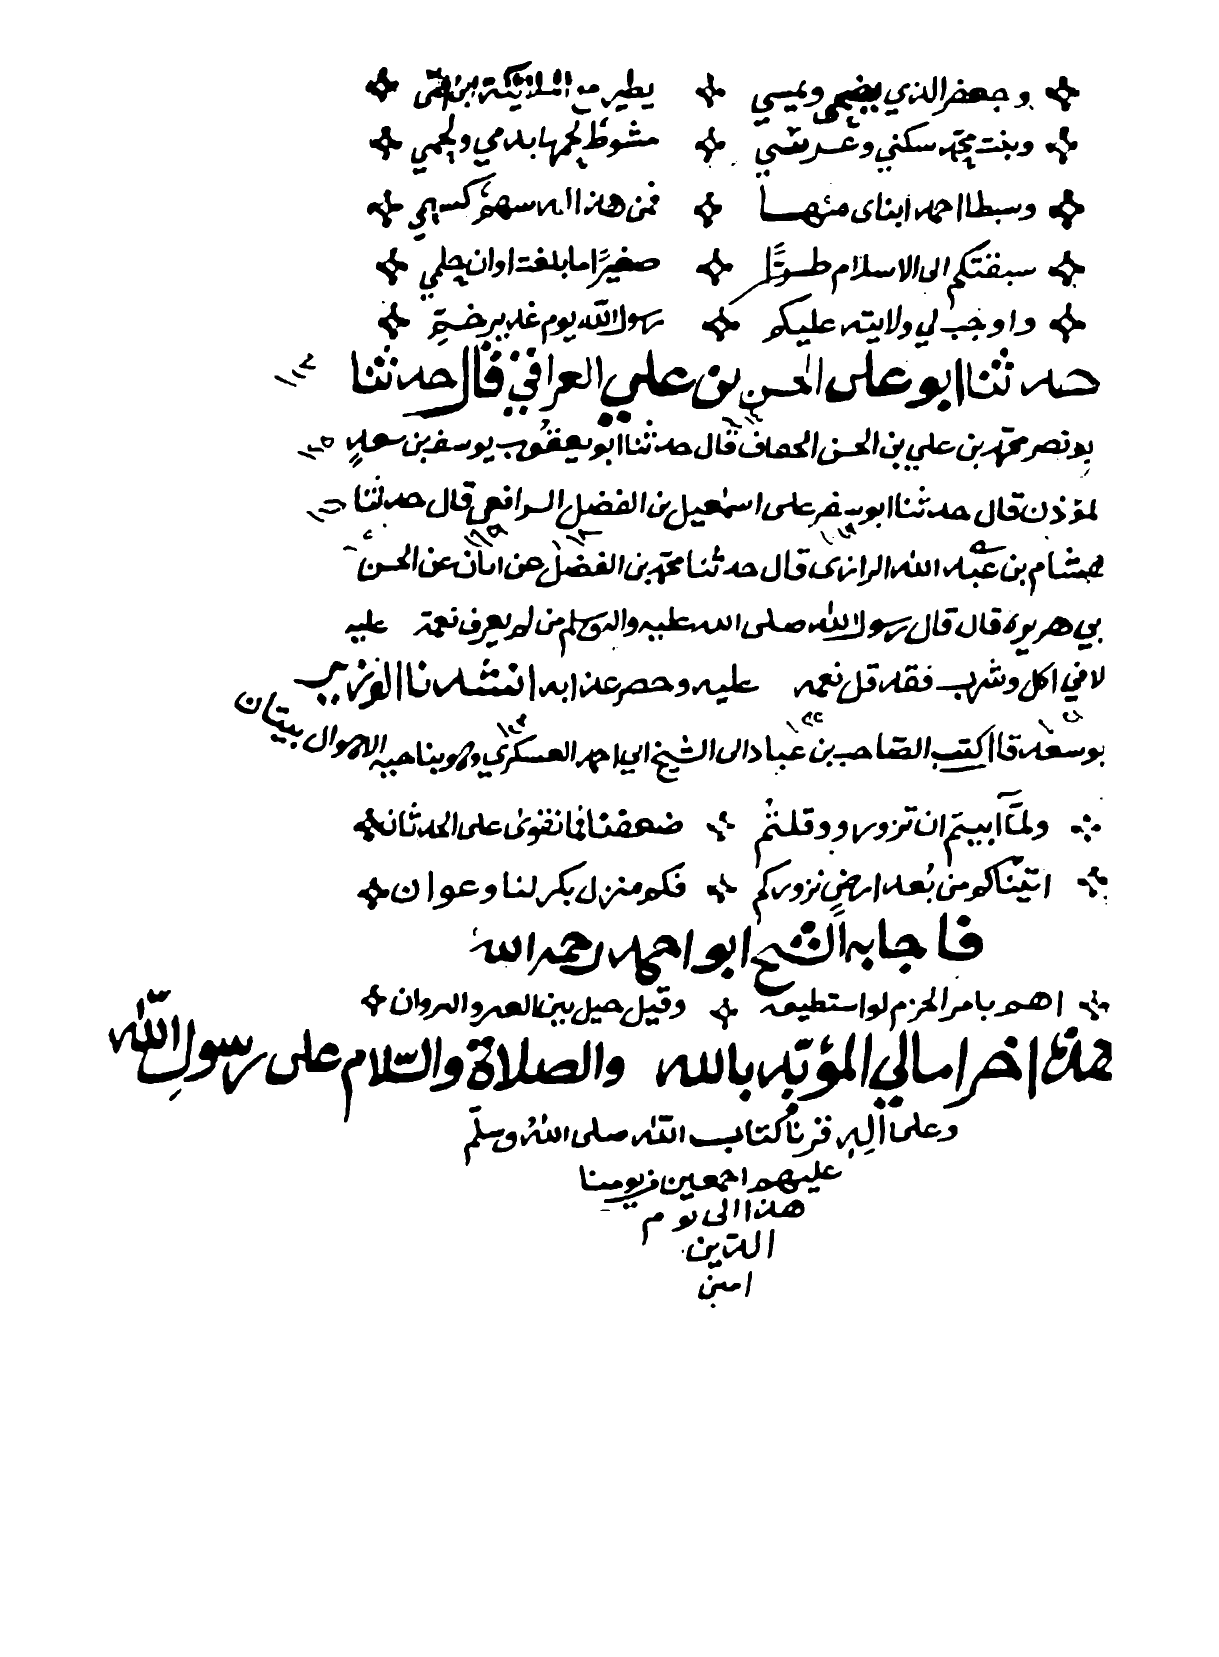 وجعفر الذي يضحى ويمسي يطير مع الملائكة ابن امي
وبنت محمد سكني وعرسي مشوط لحمها بدمي ولحمي
وسبطا احمد ابناى منها فمن هذا له سهم كسهمي
سبقتكم الى الاسلام طرًّا صغيرًا ما بلغت اوان حلمي
واوجب لي ولايته عليكم رسول الله يوم غدير خمّ
حدثنا ابو على الحسن بن علي العراقي قال حدثنا ١١٣
بو نصر محمد بن علي بن الحسن الخفاف قال حدثنا ابو يعقوب يوسف بن سعد
لمؤذن قال حدثنا ابو سفر على اسمعيل بن الفضل الرافعي قال حدثنا
هشام بن عبد الله الرازي قال حدثنا محمد بن الفضل عن ابان عن الحسن
بي هريرة قال قال رسول الله صلى الله عليه واله وسلم من لم يعرف نعمة عليه
لا في اكل وشرب فقد قل نعمه عليه وحضر عذابه انشدنا الوزير
بو سعد قال كتب الصاحب بن عباد الى الشيخ ابي احمد العسكري وهو بناحية الاهوال بيتان
ولمّا ابيتم ان تزوروا وقلتم ضعفنا فما نقوى على الحدثان
اتيناكم من بُعد ارضٍ نزوركم فكم منزل بكر لنا وعوان
فاجابه الشيخ ابو احمد رحمه الله
اهم بامر الحزم لو استطيعه وقيل حيل بين العير والنروان
هذا اخر امالي المؤيد بالله والصلاة والسّلام على رسول اللّه
وعلى آلِهِ قرنا كتاب الله صلى الله وسلّم
عليهم اجمعين من يومنا
هذا الى يوم
الدّين
امين